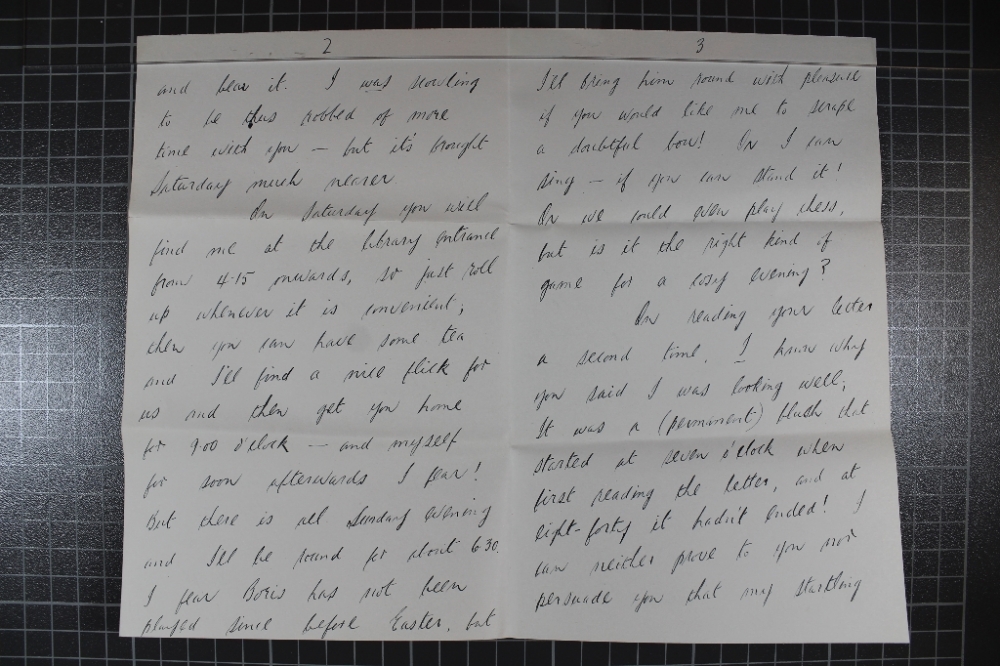 2
and bear it. I was scowling
to be thus robbed of more
time with you — but it's brought
Saturday much nearer.
On Saturday you will
find me at the library entrance
from 4.15 onwards, so just roll
up whenever it is convenient;
then you can have some tea
and I'll find a nice flick for
us and then get you home
for 9.00 o'clock — and myself
for soon afterwards I fear!
But there is all Sunday evening
and I'll be round for about 6.30.
I fear Boris has not been
played since before Easter, but
3
I'll bring him round with pleasure
if you would like me to scrape
a doubtful bow! Or I can
sing — if you can stand it!
Or we could even play chess,
but is it the right kind of
game for a cosy evening?
On reading your letter
a second time, I know why
you said I was looking well;
It was a (permanent) flush that
started at seven o'clock when
first reading the letter, and at
eight-forty it hadn't ended! I
can neither prove to you nor
persuade you that my startling